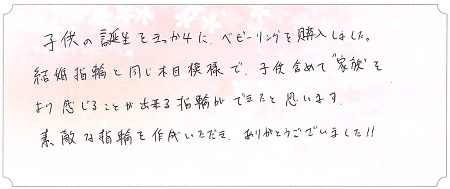 子供の誕生をきっかけに、ベビーリングを購入しました。
結婚指輪と同じ木目模様で、子供含めて"家族"を
より感じることが出来る指輪ができたと思います。
素敵な指輪を作成いただき、ありがとうございました!!